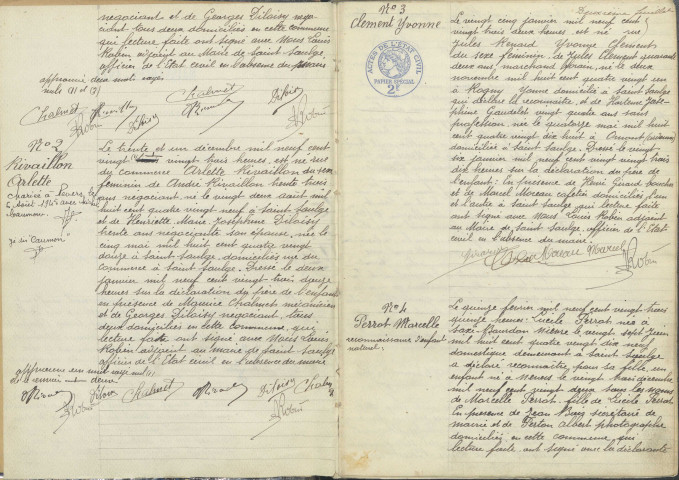 négociant et de Georges Dilaisy négo-
ciant tous deux domiciliés en cette commune
qui lecture faite ont signé avec Nous Louis
Robin adjoint au Maire de Saint Saulge
officier de l'Etat civil en l'absence du Maire
approuvé deux mots rayés
nuls
Chalmet
Robin
N° 2
Rivaillon
Arlette
mariée à Nevers, le
6 août 1945 avec
Caumon
Le trente et un décembre mil neuf cent
vingt vingt trois heures, est née rue
du commerce Arlette Rivaillon du sexe
féminin de André Rivaillon trente trois
ans négociant, né le deux août mil
huit cent quatre vingt neuf à Saint Saulge
et de Henriette Marie Joséphine Dilaisy
trente ans négociante son épouse, née le
cinq mai mil huit cent quatre vingt
douze à Saint Saulge domiciliés rue du
commerce à Saint Saulge. Dressé le deux
janvier mil neuf cent vingt trois douze
heures sur la déclaration du père de l'enfant
en présence de Maurice Chalmet mécanicien
et de Georges Dilaisy négociant, tous
deux domiciliés en cette commune, qui
lecture faite ont signé avec Nous Louis
Robin adjoint au maire de Saint Saulge
officier de l'Etat civil en l'absence du maire
approuvé un mot rayé nul
Chalmet
Robin
N° 3
Clement Yvonne
ACTES DE L'ETAT CIVIL
PAPIER SPECIAL
2F
Deuxième feuillet
Le vingt cinq janvier mil neuf cent
vingt trois deux heures est né rue
Jules Renard Yvonne Clement
du sexe féminin, de Jules Clement quarante
deux ans, marchand forain, né le deux
novembre mil huit cent quatre vingt un
à Rogny Yonne domicilié à Saint Saulge
qui déclare la reconnaître, et de Marlene José-
phine Gaudelet vingt quatre ans sans
profession, née le quatorze mai mil huit
cent quatre vingt dix huit à
domiciliée à Saint Saulge. Dressé le vingt
six janvier mil neuf cent vingt vingt trois
dix heures sur la déclaration du père de
l'enfant. En présence de Henri Girard
et de Marcel Moreau cafetier domiciliés l'un
et l'autre à Saint Saulge qui lecture faite
ont signé avec Nous Louis Robin adjoint
au Maire de Saint Saulge officier de l'Etat
civil en l'absence du maire.
Moreau Marcel
Robin
N° 4
Perrot Marcelle
reconnaissance d'enfant
naturel.
Le quinze février mil neuf cent vingt trois
quinze heures. Lucile Perrot née à
Saxi Bourdon Nièvre le vingt sept juin
mil huit cent quatre vingt dix neuf
domestique demeurant à Saint Saulge
a déclaré reconnaître pour sa fille, un
enfant né à Nevers le vingt trois décembre
mil neuf cent vingt deux sous les noms
de Marcelle Perrot fille de Lucile Perrot
En présence de Jean Buis secrétaire de
mairie et de Perlon Albert photographe
domiciliés en cette commune qui
lecture faite ont signé avec la déclarante